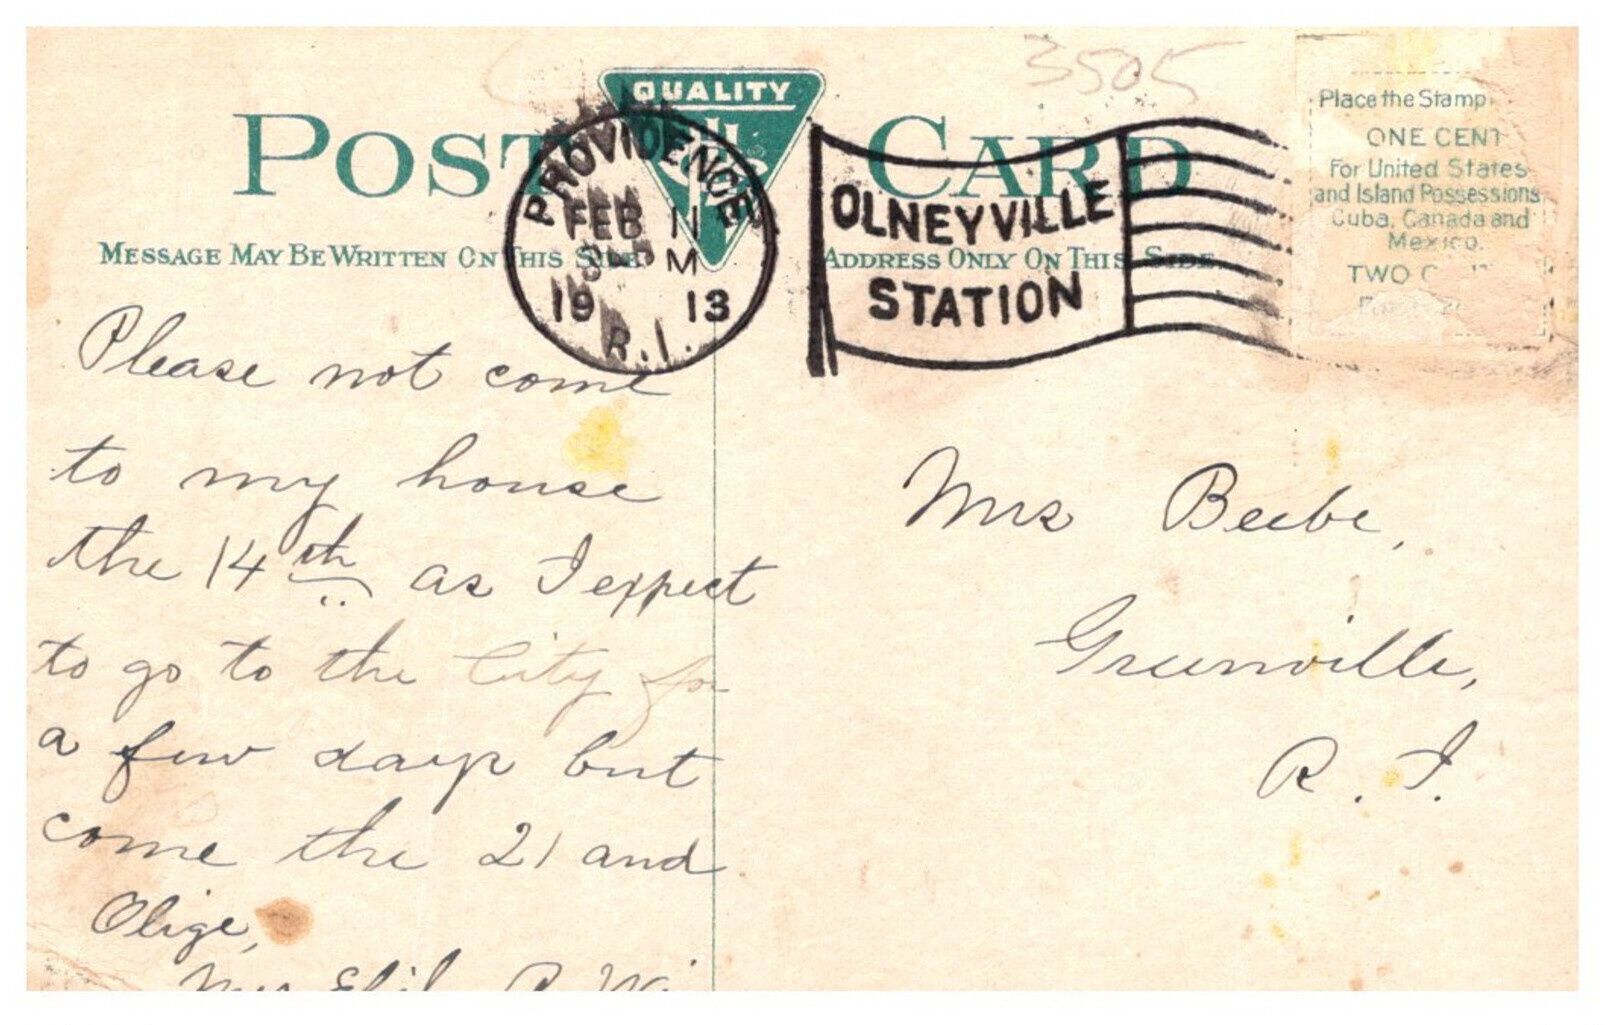 3505
QUALITY
POST CARD
PROVIDENCE
FEB 11
M
19 13
R.I.
OLNEYVILLE
STATION
Place the Stamp
ONE CENT
For United States
and Island Possessions,
Cuba, Canada and
Mexico.
TWO
MESSAGE MAY BE WRITTEN ON THIS SIDE
ADDRESS ONLY ON THIS SIDE
Please not come
to my house
the 14th as I expect
to go to the City for
a few days but
come the 21 and
Olige,
Mrs
Mrs Beebe,
Greenville,
R. I.